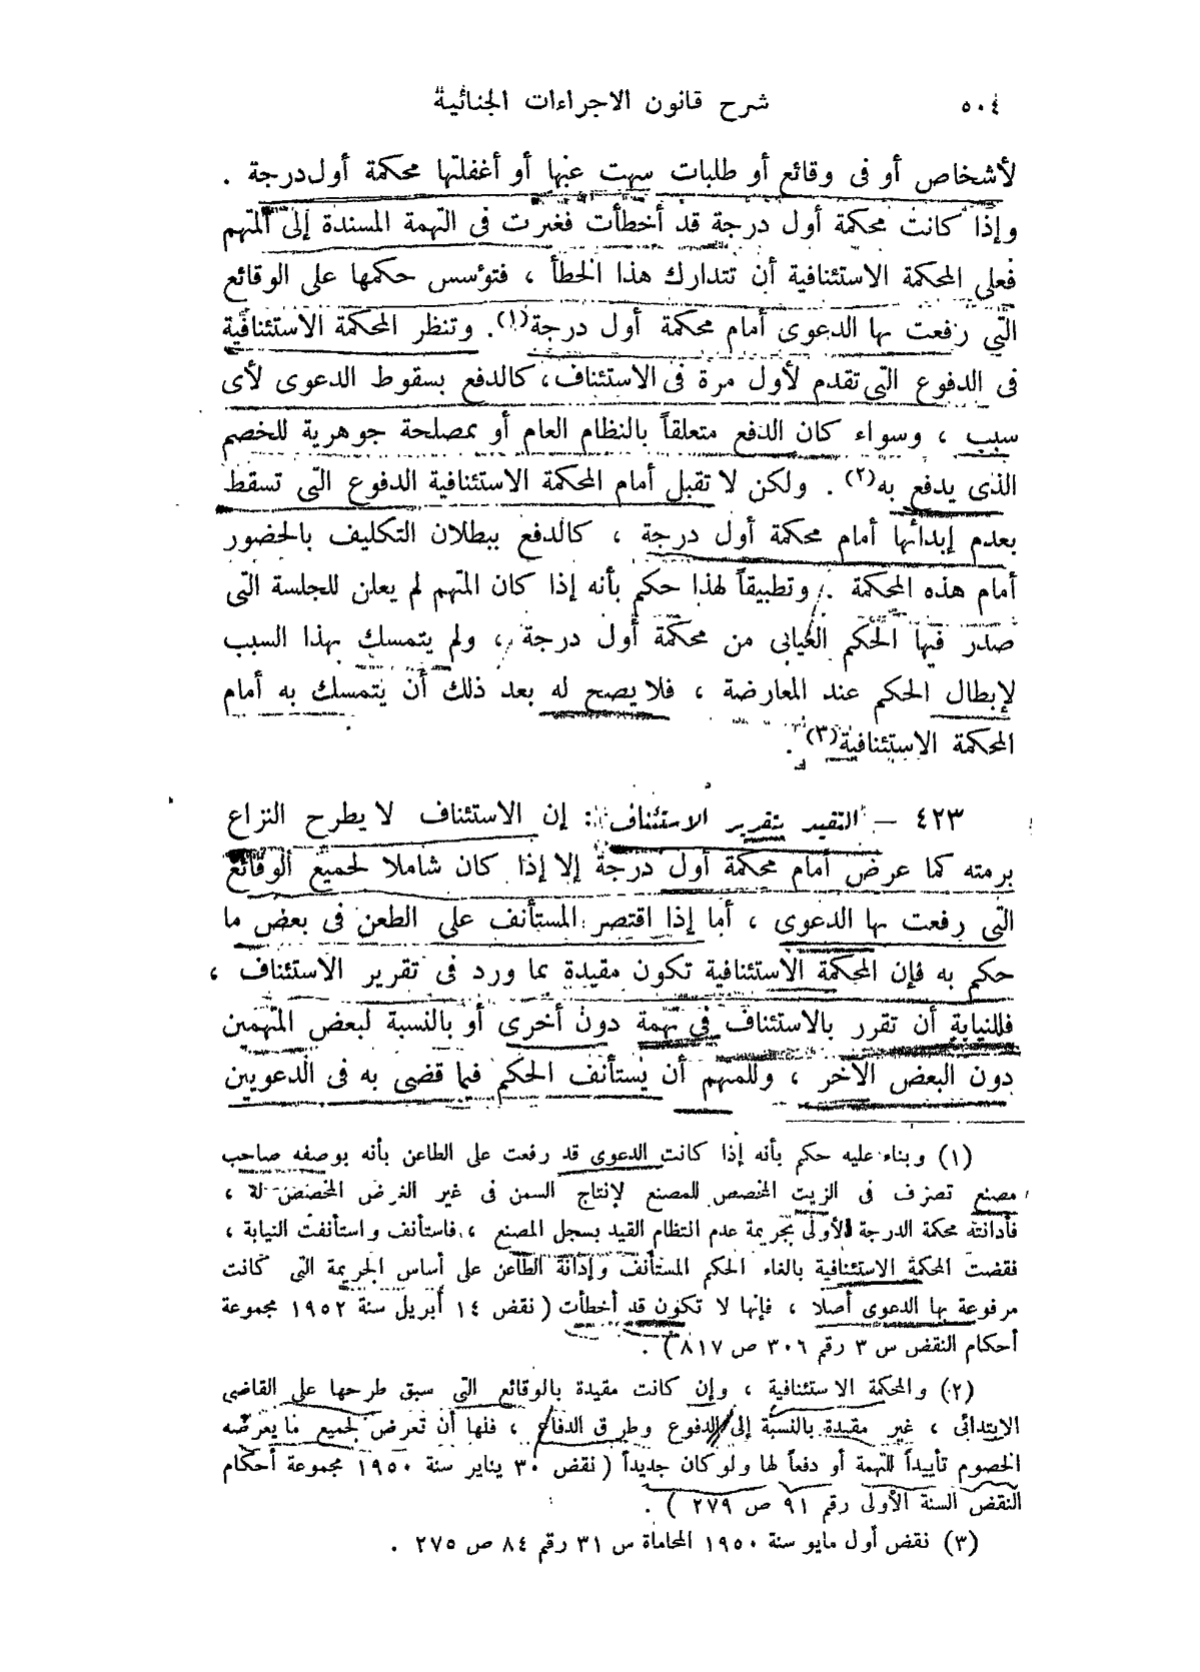 ٥٠٤
شرح قانون الاجراءات الجنائية
لأشخاص أو فى وقائع أو طلبات سهت عنها أو أغفلتها محكمة أول درجة .
وإذا كانت محكمة أول درجة قد أخطأت فغيرت فى التهمة المسندة إلى المتهم
فعلى المحكمة الاستئنافية أن تتدارك هذا الخطأ ، فتؤسس حكمها على الوقائع
التى رفعت بها الدعوى أمام محكمة أول درجة(١). وتنظر المحكمة الاستئنافية
فى الدفوع التى تقدم لأول مرة فى الاستئناف، كالدفع بسقوط الدعوى لأى
سبب ، وسواء كان الدفع متعلقاً بالنظام العام أو بمصلحة جوهرية للخصم
الذى يدفع به(٢) . ولكن لا تقبل أمام المحكمة الاستئنافية الدفوع التى تسقط
بعدم إبدائها أمام محكمة أول درجة ، كالدفع ببطلان التكليف بالحضور
أمام هذه المحكمة . وتطبيقاً لهذا حكم بأنه إذا كان المتهم لم يعلن للجلسة التى
صدر فيها الحكم الغيابى من محكمة أول درجة ، ولم يتمسك بهذا السبب
لإبطال الحكم عند المعارضة ، فلا يصح له بعد ذلك أن يتمسك به أمام
المحكمة الاستئنافية(٣) .
٤٢٣ – التقيد بتقرير الاستئناف : إن الاستئناف لا يطرح النزاع
برمته كما عرض أمام محكمة أول درجة إلا إذا كان شاملا لجميع الوقائع
التى رفعت بها الدعوى ، أما إذا اقتصر المستأنف على الطعن فى بعض ما
حكم به فإن المحكمة الاستئنافية تكون مقيدة بما ورد فى تقرير الاستئناف ،
فللنيابة أن تقرر بالاستئناف فى تهمة دون أخرى أو بالنسبة لبعض المتهمين
دون البعض الآخر ، وللمتهم أن يستأنف الحكم فيما قضى به فى الدعويين
(١) وبناء عليه حكم بأنه إذا كانت الدعوى قد رفعت على الطاعن بأنه بوصفه صاحب
مصنع تصرف فى الزيت المخصص للمصنع لإنتاج السمن فى غير الغرض المخصص له ،
فأدانته محكمة الدرجة الأولى بجريمة عدم انتظام القيد بسجل المصنع ، فاستأنف واستأنفت النيابة ،
فقضت المحكمة الاستئنافية بالغاء الحكم المستأنف وإدانة الطاعن على أساس الجريمة التى كانت
مرفوعة بها الدعوى أصلا ، فإنها لا تكون قد أخطأت ( نقض ١٤ أبريل سنة ١٩٥٢ مجموعة
أحكام النقض س ٣ رقم ٣٠٦ ص ٨١٧ ) .
(٢) والمحكمة الاستئنافية ، وإن كانت مقيدة بالوقائع التى سبق طرحها على القاضى
الابتدائى ، غير مقيدة بالنسبة إلى الدفوع وطرق الدفاع ، فلها أن تعرض لجميع ما يعرضه
الخصوم تأييداً للتهمة أو دفعاً لها ولو كان جديداً ( نقض ٣٠ يناير سنة ١٩٥٠ مجموعة أحكام
النقض السنة الأولى رقم ٩١ ص ٢٧٩ ) .
(٣) نقض أول مايو سنة ١٩٥٠ المحاماة س ٣١ رقم ٨٤ ص ٢٧٥ .